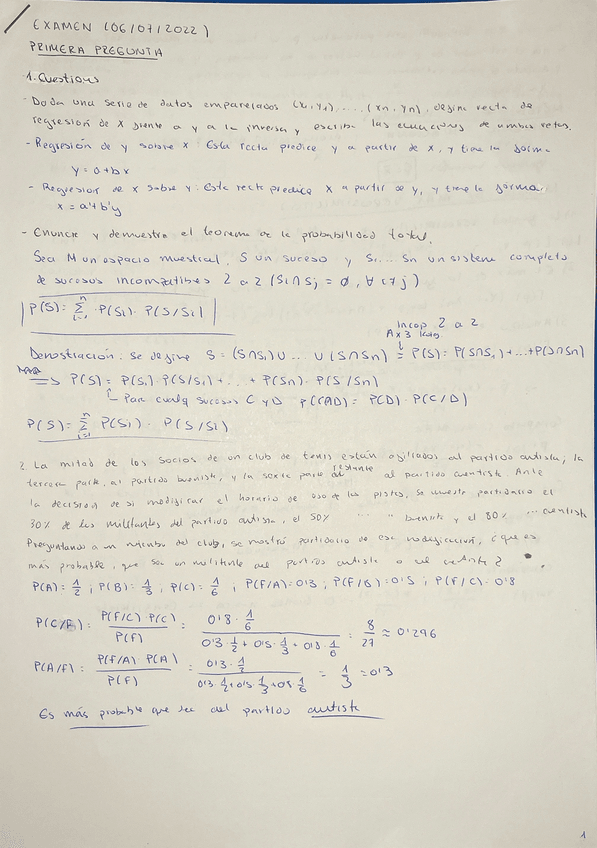 EXAMEN (06/07/2022)
PRIMERA PREGUNTA
1. Cuestions
- Dada una serie de datos emparejados (x1,y1), ..., (xn, yn), defina recta de
regresión de x frente a y a la inversa y escriba las ecuaciones de ambas retas.
- Regresión de y sobre x: Esta recta predice y a partir de x, y tiene la forma
y = a+bx
- Regresion de x sobre y: Este recta predice x a partir de y, y tiene la forma:
x = a'+b'y
- Enuncie y demuestre el teorema de la probabilidad total.
Sea M un espacio muestral, S un suceso y S1 ... Sn un sistema completo
de sucesos incompatibles 2 a 2 (Si∩Sj = ∅, ∀ i≠j)
P(S)= Σ P(Si) · P(S/Si)
Incop 2 a 2
Ax3 Kolg.
Demostración: Se define S = (S∩S1)∪ ... ∪(S∩Sn) = P(S)= P(S∩S1)+...+P(S∩Sn)
=> P(S)= P(S1)·P(S/S1)+...+ P(Sn)·P(S/Sn)
Para cualq sucesos C y D P(C∩D)= P(D)·P(C/D)
P(S)= Σ P(Si) · P(S/Si)
2. La mitad de los socios de un club de tenis están afiliados al partido autista, la
tercera parte, al partido buenista, y la sexta parte restante al partido cuentista. Ante
la decisión de si modificar el horario de uso de las pistas, se muestra partidario el
30% de los militantes del partido autista, el 50% " " " buenista y el 80% ... cuentista
Preguntando a un miembro del club, se mostró partidario de esa modificación, ¿que es
más probable, que sea un militante del partido autista o el cuentista?
P(A)= 1/2 ; P(B)= 1/3 ; P(C)= 1/6 ; P(F/A)=0'3 ; P(F/B)=0'5 ; P(F/C)=0'8
P(C/F)= P(F/C) P(C) / P(F) = 0'8 · 1/6 / 0'3·1/2 + 0'5·1/3 + 0'8·1/6 = 8/27 ≈ 0'296
P(A/F)= P(F/A) P(A) / P(F) = 0'3 · 1/2 / 0'3·1/2+0'5·1/3+0'8·1/6 = 1/3 = 0'3
Es más probable que sea del partido autista
1